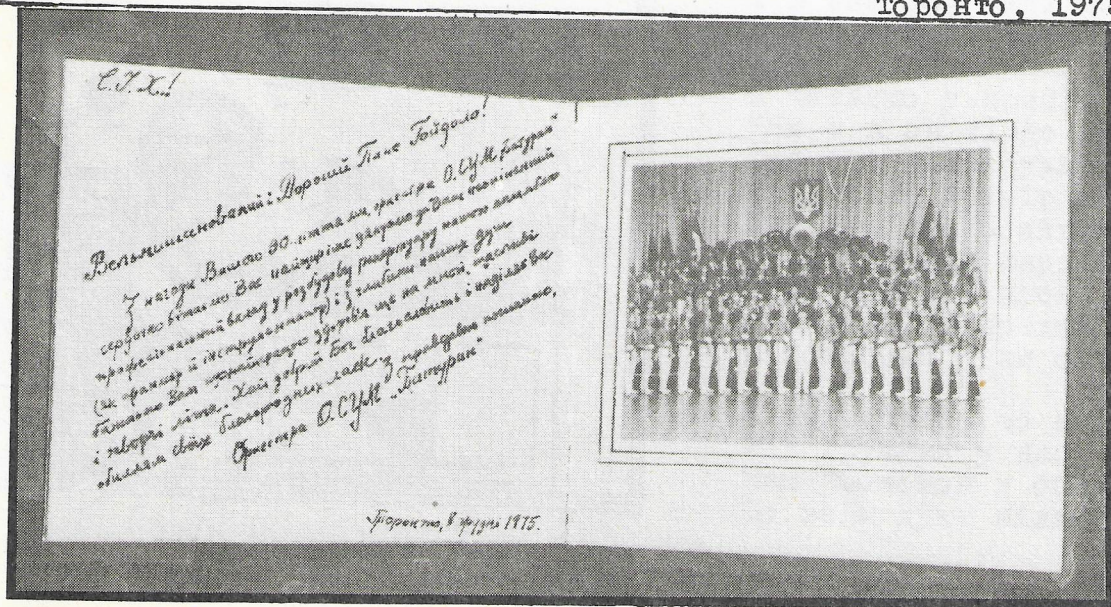 Торонто, 197
С.І.Х!
Вельмишановний і Дорогий Пане Гойдало!
З нагоди Вашого 90-ліття ми, оркестра О.СУМ „Батурин“
сердечно вітаємо Вас найщиріше дякуємо за Ваш
професіональний вклад у розбудову репертуару нашого ансамблю
(як аранжер й інструментатор) і з глибини наших душ
бажаємо Вам якнайкращого здоров'я ще на многі, щасливі
і творчі літа. Хай добрий Бог благословить і наділяє Вас
обиллям своїх благородних ласк. З правдивою пошаною,
Оркестра О.СУМ „Батурин“
Торонто, в грудні 1975.